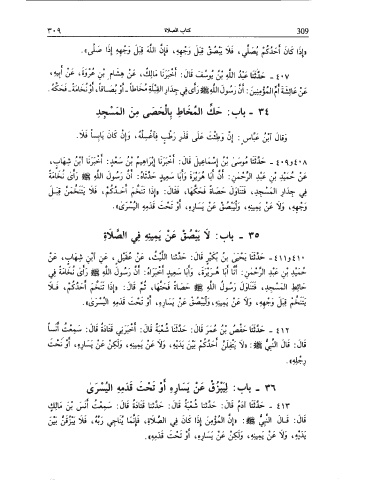 ٣٠٩ كتاب الصلاة 309
«إِذَا كَانَ أَحَدُكُمْ يُصَلِّي، فَلَا يَبْصُقْ قِبَلَ وَجْهِهِ، فَإِنَّ اللَّهَ قِبَلَ وَجْهِهِ إِذَا صَلَّى».
٤٠٧ - حَدَّثَنَا عَبْدُ اللَّهِ بْنُ يُوسُفَ قَالَ: أَخْبَرَنَا مَالِكٌ، عَنْ هِشَامِ بْنِ عُرْوَةَ، عَنْ أَبِيهِ،
عَنْ عَائِشَةَ أُمِّ الْمُؤْمِنِينَ: أَنَّ رَسُولَ اللَّهِ ﷺ رَأَى فِي جِدَارِ الْقِبْلَةِ مُخَاطًا، أَوْ بُصَاقًا، أَوْ نُخَامَةً، فَحَكَّهُ.
٣٤ - باب: حَكِّ الْمُخَاطِ بِالْحَصَى مِنَ الْمَسْجِدِ
وَقَالَ ابْنُ عَبَّاسٍ: إِنْ وَطِئْتَ عَلَى قَذَرٍ رَطْبٍ فَاغْسِلْهُ، وَإِنْ كَانَ يَابِسًا فَلَا.
٤٠٨و٤٠٩ - حَدَّثَنَا مُوسَى بْنُ إِسْمَاعِيلَ قَالَ: أَخْبَرَنَا إِبْرَاهِيمُ بْنُ سَعْدٍ: أَخْبَرَنَا ابْنُ شِهَابٍ،
عَنْ حُمَيْدِ بْنِ عَبْدِ الرَّحْمٰنِ: أَنَّ أَبَا هُرَيْرَةَ وَأَبَا سَعِيدٍ حَدَّثَاهُ: أَنَّ رَسُولَ اللَّهِ ﷺ رَأَى نُخَامَةً
فِي جِدَارِ الْمَسْجِدِ، فَتَنَاوَلَ حَصَاةً فَحَكَّهَا، فَقَالَ: «إِذَا تَنَخَّمَ أَحَدُكُمْ، فَلَا يَتَنَخَّمَنَّ قِبَلَ
وَجْهِهِ، وَلَا عَنْ يَمِينِهِ، وَلْيَبْصُقْ عَنْ يَسَارِهِ، أَوْ تَحْتَ قَدَمِهِ الْيُسْرَى».
٣٥ - باب: لَا يَبْصُقْ عَنْ يَمِينِهِ فِي الصَّلَاةِ
٤١٠و٤١١ - حَدَّثَنَا يَحْيَى بْنُ بُكَيْرٍ قَالَ: حَدَّثَنَا اللَّيْثُ، عَنْ عُقَيْلٍ، عَنِ ابْنِ شِهَابٍ، عَنْ
حُمَيْدِ بْنِ عَبْدِ الرَّحْمٰنِ: أَنَّ أَبَا هُرَيْرَةَ، وَأَبَا سَعِيدٍ أَخْبَرَاهُ: أَنَّ رَسُولَ اللَّهِ ﷺ رَأَى نُخَامَةً فِي
حَائِطِ الْمَسْجِدِ، فَتَنَاوَلَ رَسُولُ اللَّهِ ﷺ حَصَاةً فَحَتَّهَا، ثُمَّ قَالَ: «إِذَا تَنَخَّمَ أَحَدُكُمْ، فَلَا
يَتَنَخَّمْ قِبَلَ وَجْهِهِ، وَلَا عَنْ يَمِينِهِ، وَلْيَبْصُقْ عَنْ يَسَارِهِ، أَوْ تَحْتَ قَدَمِهِ الْيُسْرَى».
٤١٢ - حَدَّثَنَا حَفْصُ بْنُ عُمَرَ قَالَ: حَدَّثَنَا شُعْبَةُ قَالَ: أَخْبَرَنِي قَتَادَةُ قَالَ: سَمِعْتُ أَنَسًا
قَالَ: قَالَ النَّبِيُّ ﷺ: «لَا يَتْفِلَنَّ أَحَدُكُمْ بَيْنَ يَدَيْهِ، وَلَا عَنْ يَمِينِهِ، وَلٰكِنْ عَنْ يَسَارِهِ، أَوْ تَحْتَ
رِجْلِهِ».
٣٦ - باب: لِيَبْزُقْ عَنْ يَسَارِهِ أَوْ تَحْتَ قَدَمِهِ الْيُسْرَى
٤١٣ - حَدَّثَنَا آدَمُ قَالَ: حَدَّثَنَا شُعْبَةُ قَالَ: حَدَّثَنَا قَتَادَةُ قَالَ: سَمِعْتُ أَنَسَ بْنَ مَالِكٍ
قَالَ: قَالَ النَّبِيُّ ﷺ: «إِنَّ الْمُؤْمِنَ إِذَا كَانَ فِي الصَّلَاةِ، فَإِنَّمَا يُنَاجِي رَبَّهُ، فَلَا يَبْزُقَنَّ بَيْنَ
يَدَيْهِ، وَلَا عَنْ يَمِينِهِ، وَلٰكِنْ عَنْ يَسَارِهِ، أَوْ تَحْتَ قَدَمِهِ».